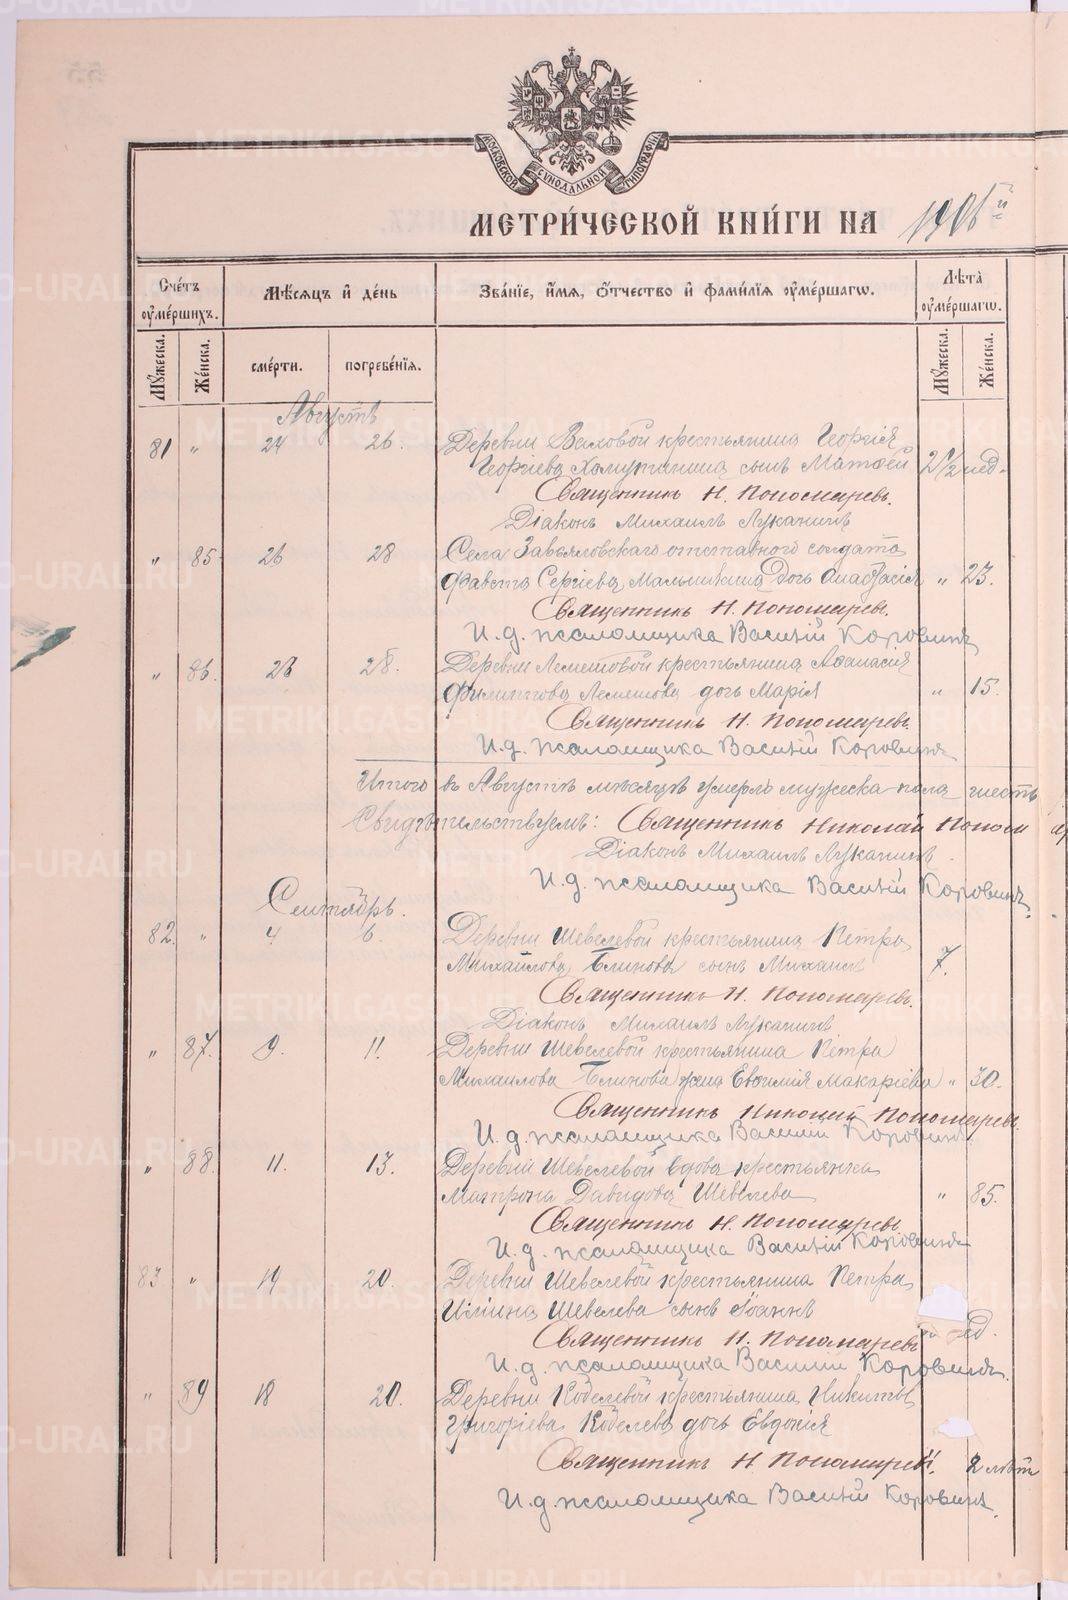 МОСКОВСКОЙ СѴНОДАЛЬНОЙ ТИПОГРАФІИ
МЕТРИ́ЧЕСКОЙ КНИ́ГИ НА 1906 й
Сче́тъ оумéршихъ.
Мѣ́сяцъ и де́нь
Зва́ніе, и́мя, ѻ́тчество и фами́лія оумéршагѡ.
Лѣта̀ оумéршагѡ.
Му́жеска.
Же́нска.
сме́рти.
погребе́нія.
Му́жеска.
Же́нска.
Августъ
81 " 24 26. Деревни Валовой крестьянина Георгія
Георгіева сынъ Матѳей 2 1/2 нед.
Священникъ Н. Пономаревъ.
Діаконъ Михаилъ Лукачинъ
" 85 26 28 Села Завьяловскаго отставного солдата
Фавста Сергіева Мальшкина дочь Анастасія " 23.
Священникъ Н. Пономаревъ.
И.д. псаломщика Василій Коровинъ
" 86. 26 28. Деревни Лемешовой крестьянина Аѳанасія
Филиппова Лемешова дочь Марія " 15.
Священникъ Н. Пономаревъ.
И.д. псаломщика Василій Коровинъ
Итого въ Августѣ мѣсяцѣ умерло мужеска пола шесть
Свидѣтельствуемъ: Священникъ Николай Пономар
Діаконъ Михаилъ Лукачинъ.
И.д. псаломщика Василій Коровинъ.
Сентябрь.
82. " 4. 6. Деревни Шевелевой крестьянина Петра
Михайлова Блинова сынъ Михаилъ 7.
Священникъ Н. Пономаревъ.
Діаконъ Михаилъ Лукачинъ
" 87. 9. 11. Деревни Шевелевой крестьянина Петра
Михаилова Блинова жена Евѳимія Макаріева " 30.
Священникъ Николай Пономаревъ.
И.д. псаломщика Василій Коровинъ
" 88. 11. 13. Деревни Шевелевой вдова крестьянка
Матрона Давидова Шевелева " 85.
Священникъ Н. Пономаревъ
И.д. псаломщика Василій Коровинъ
83. " 19 20. Деревни Шевелевой крестьянина Петра
Ильина Шевелева сынъ Іоаннъ
Священникъ Н. Пономаревъ
И.д. псаломщика Василій Коровинъ.
" 89 18 20. Деревни Кобелевой крестьянина Никиты
Григоріева Кобелева дочь Евдокія
Священникъ Н. Пономаревъ. 2 лѣтъ
И.д. псаломщика Василій Коровинъ.
METRIKI.GASO-URAL.RU